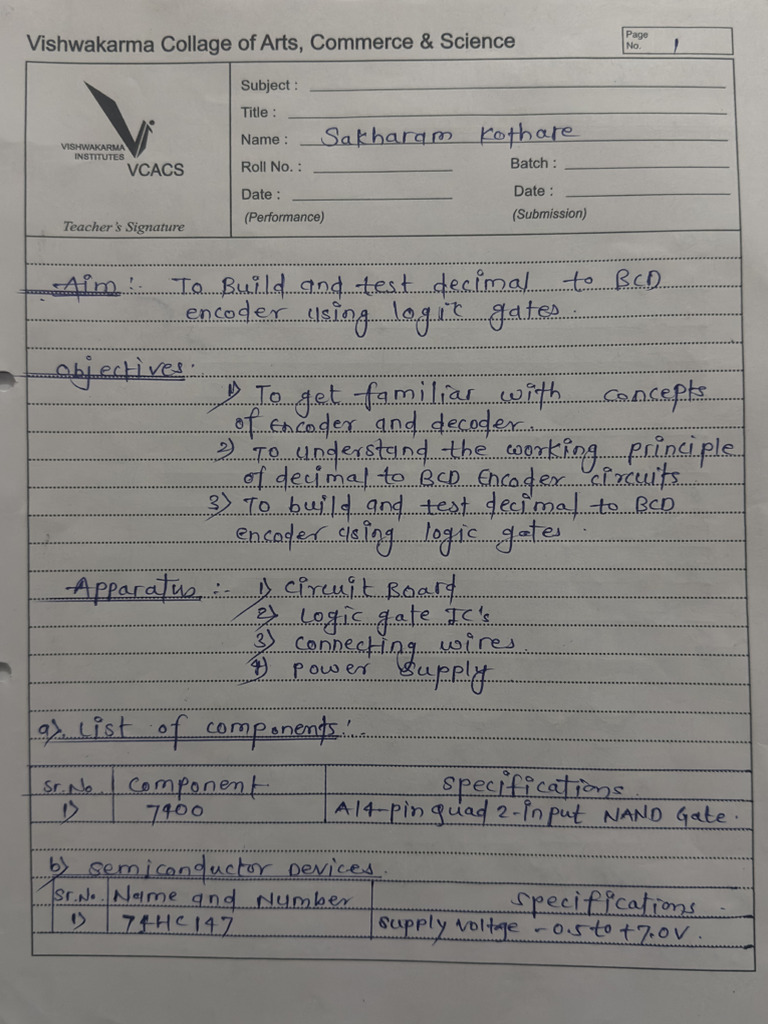 Vishwakarma Collage of Arts, Commerce & Science
Page No. 1
VISHWAKARMA
INSTITUTES
VCACS
Teacher's Signature
Subject :
Title :
Name : Sakharam Kothare
Roll No. : Batch :
Date : Date :
(Performance) (Submission)
Aim :- To Build and test decimal to BCD
encoder using logic gates.
objectives.
1) To get familiar with concepts
of encoder and decoder.
2) To understand the working principle
of decimal to BCD Encoder circuits
3) To build and test decimal to BCD
encoder using logic gates.
Apparatus :- 1) circuit Board
2) Logic gate IC's
3) connecting wires.
4) power supply
a). List of components:-
Sr.No. Component specifications
1) 7400 A14-pin quad 2-input NAND Gate.
b) semiconductor Devices.
Sr.No. Name and Number specifications.
1) 74HC147 supply voltge -0.5 to +7.0V.